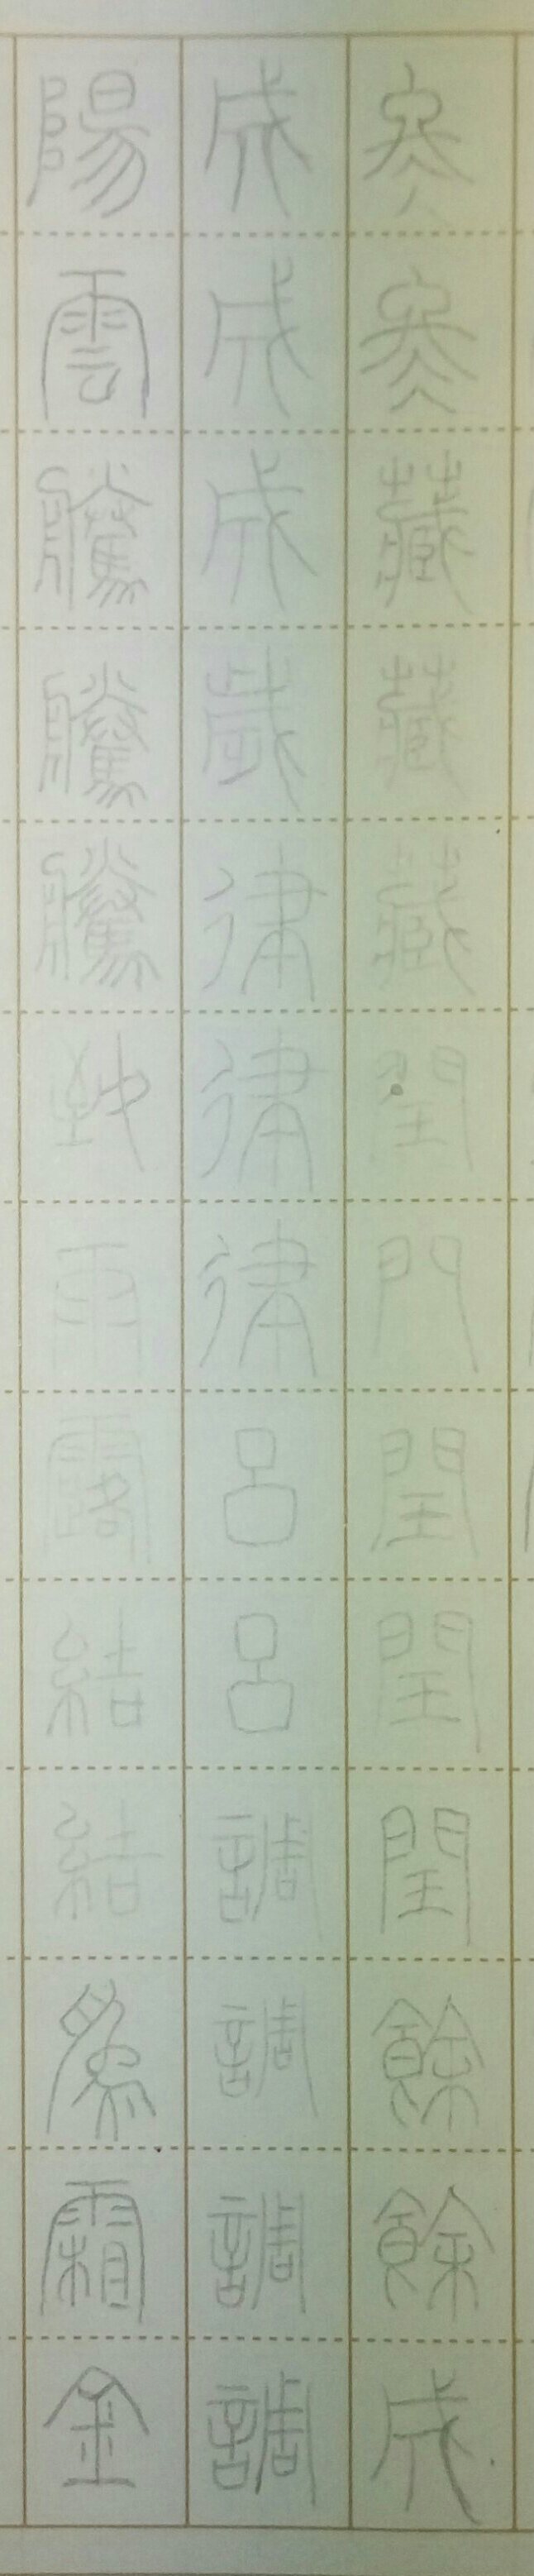 冬冬藏藏藏閏門閏閏閏餘餘成
成成成歲律律律呂呂調調調調
陽雲騰騰騰致雨露結結為霜金